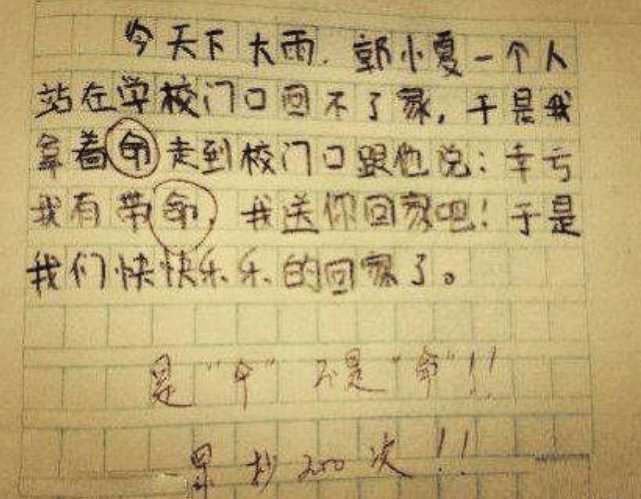 今天下大雨.郭小夏一个人
站在学校门口回不了家,于是我
拿着命走到校门口跟他说:幸亏
我有带命,我送你回家吧!于是
我们快快乐乐的回家了。
是"伞"不是"命"!!
罚抄200次!!